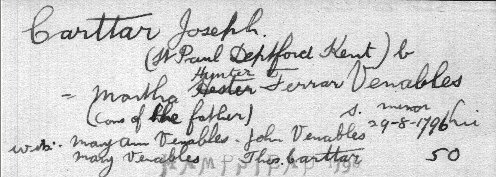 Carttar Joseph.
(St Paul Deptford Kent) b
Hunter
= Martha Hester Ferrar Venables
(cons of the father) s. minor
29-8-1796 Lic
Wit:. Mary Ann Venables - John Venables
Mary Venables Thos. Carttar 50
HAMPSTEAD 1796